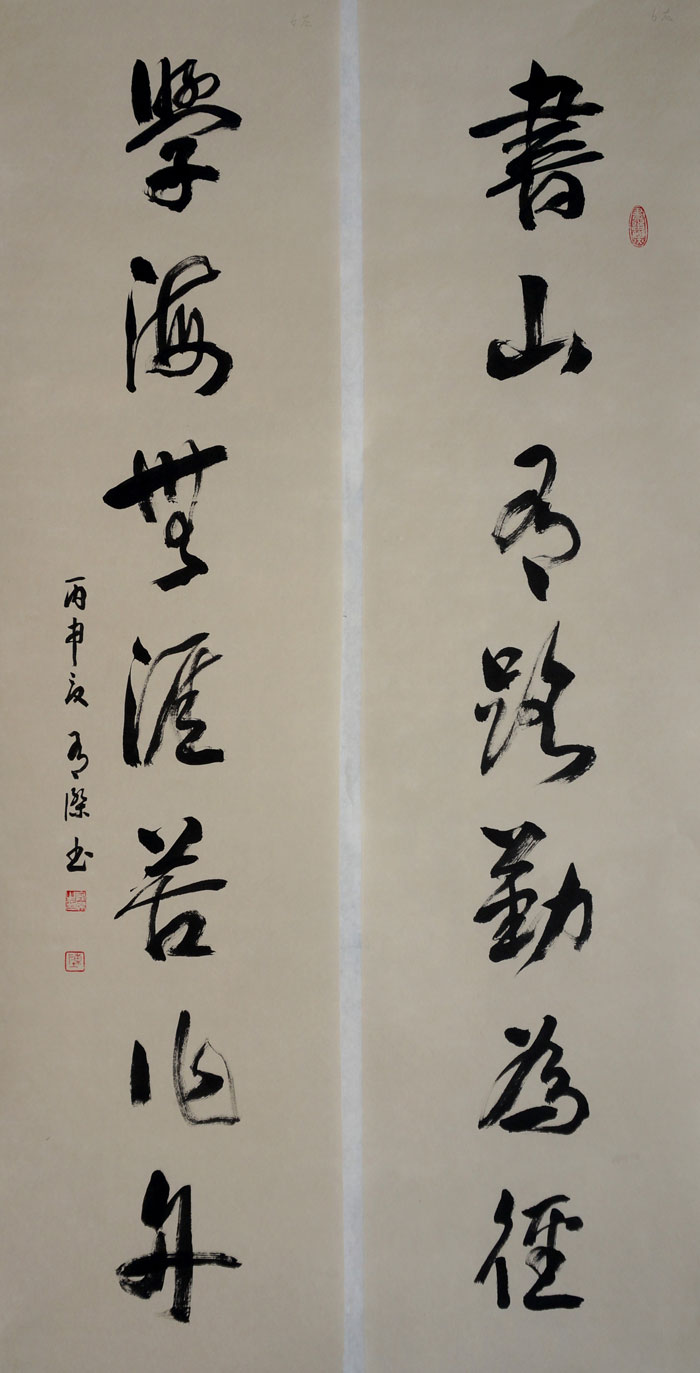 書山有路勤為徑
學海無涯苦作舟
丙申夏 有傑书